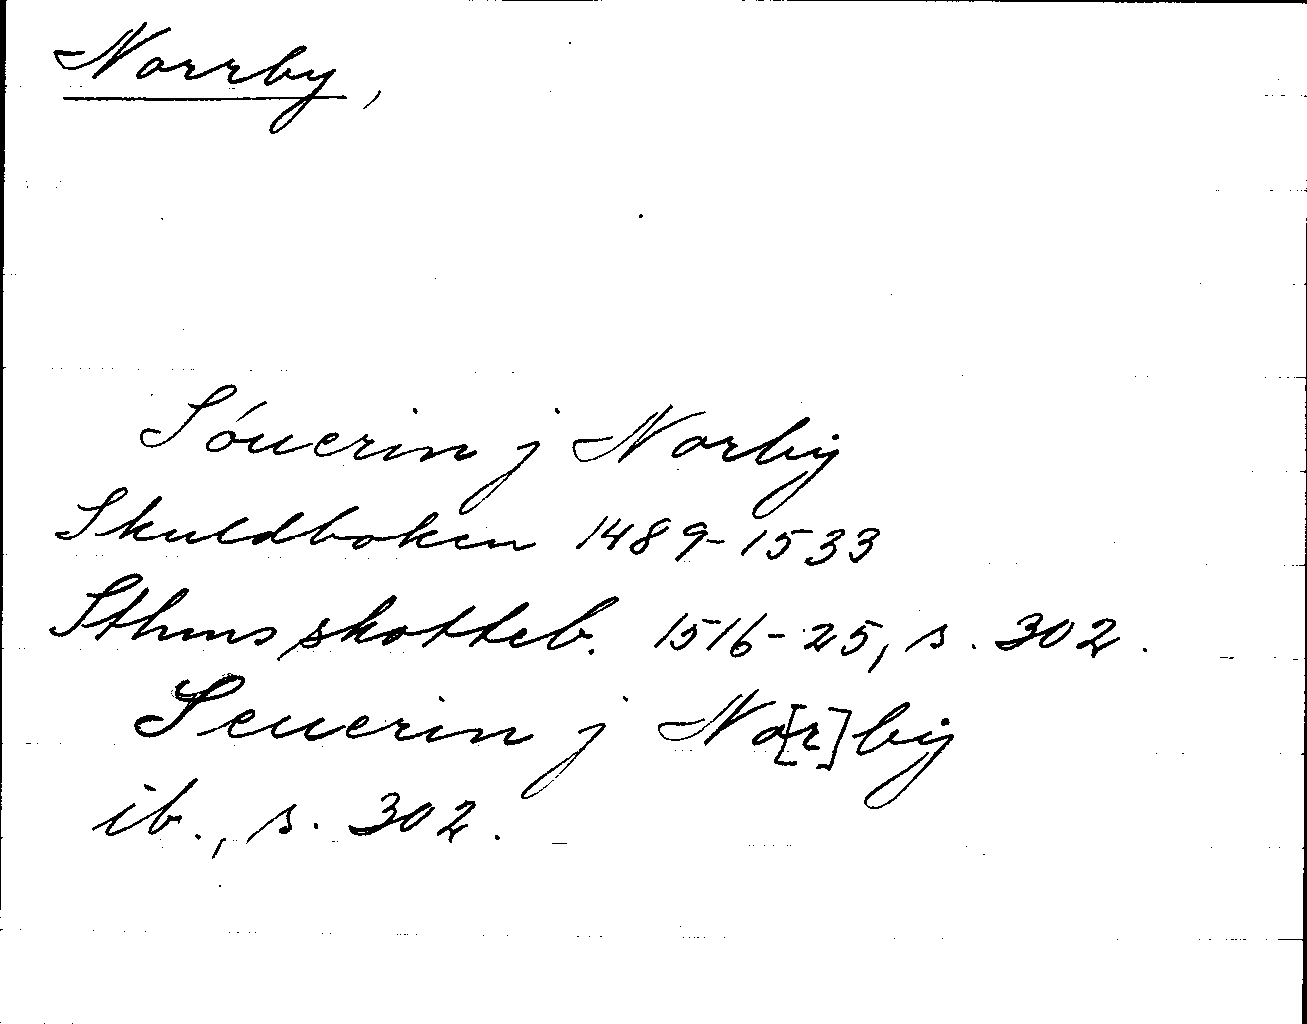 Norrby,
Sóuerin j Norbÿ
Skuldboken 1489-1533
Sthms skotteb. 1516-25, s. 302.
Seuerin j No[r]bÿ
ib., s. 302.